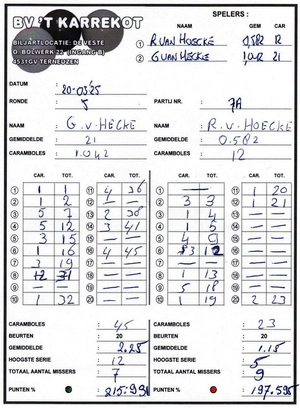 BV 'T KARREKOT
SPELERS :
NAAM GEM CAR
BILJARTLOCATIE: DE VESTE
D. BOLWERK 22 (INGANG B)
4531GV TERNEUZEN
1 R VAN HOECKE 0,582 12
2 G VAN HECKE 1,042 21
DATUM : 20-03-25
RONDE : 5 PARTIJ NR. : 7A
NAAM : G. v. HECKE NAAM : R. v. HOECKE
GEMIDDELDE : 21 GEMIDDELDE : 0.582
CARAMBOLES : 1.042 CARAMBOLES : 12
CAR. TOT. CAR. TOT. CAR. TOT. CAR. TOT.
1 1 1 11 4 36 1 — 11 1 20
2 1 2 12 2 3 3 12 1 21
3 5 7 13 2 38 3 1 4 13 — —
4 5 12 14 3 41 4 1 5 14 — —
5 3 15 15 — — 5 4 9 15 — —
6 1 16 16 4 45 6 3 12 16 — —
7 3 19 17 — — 7 — — 17 — —
8 12 31 18 — — 8 1 13 18 — —
9 — — 19 — — 9 5 18 19 — —
10 1 32 20 — — 10 1 19 20 2 23
CARAMBOLES : 45 CARAMBOLES : 23
BEURTEN : 20 BEURTEN : 20
GEMIDDELDE : 2.25 GEMIDDELDE : 1.15
HOOGSTE SERIE : 12 HOOGSTE SERIE : 5
TOTAAL AANTAL MISSERS : 7 TOTAAL AANTAL MISSERS : 9
PUNTEN % : 215.931 PUNTEN % : 197.595